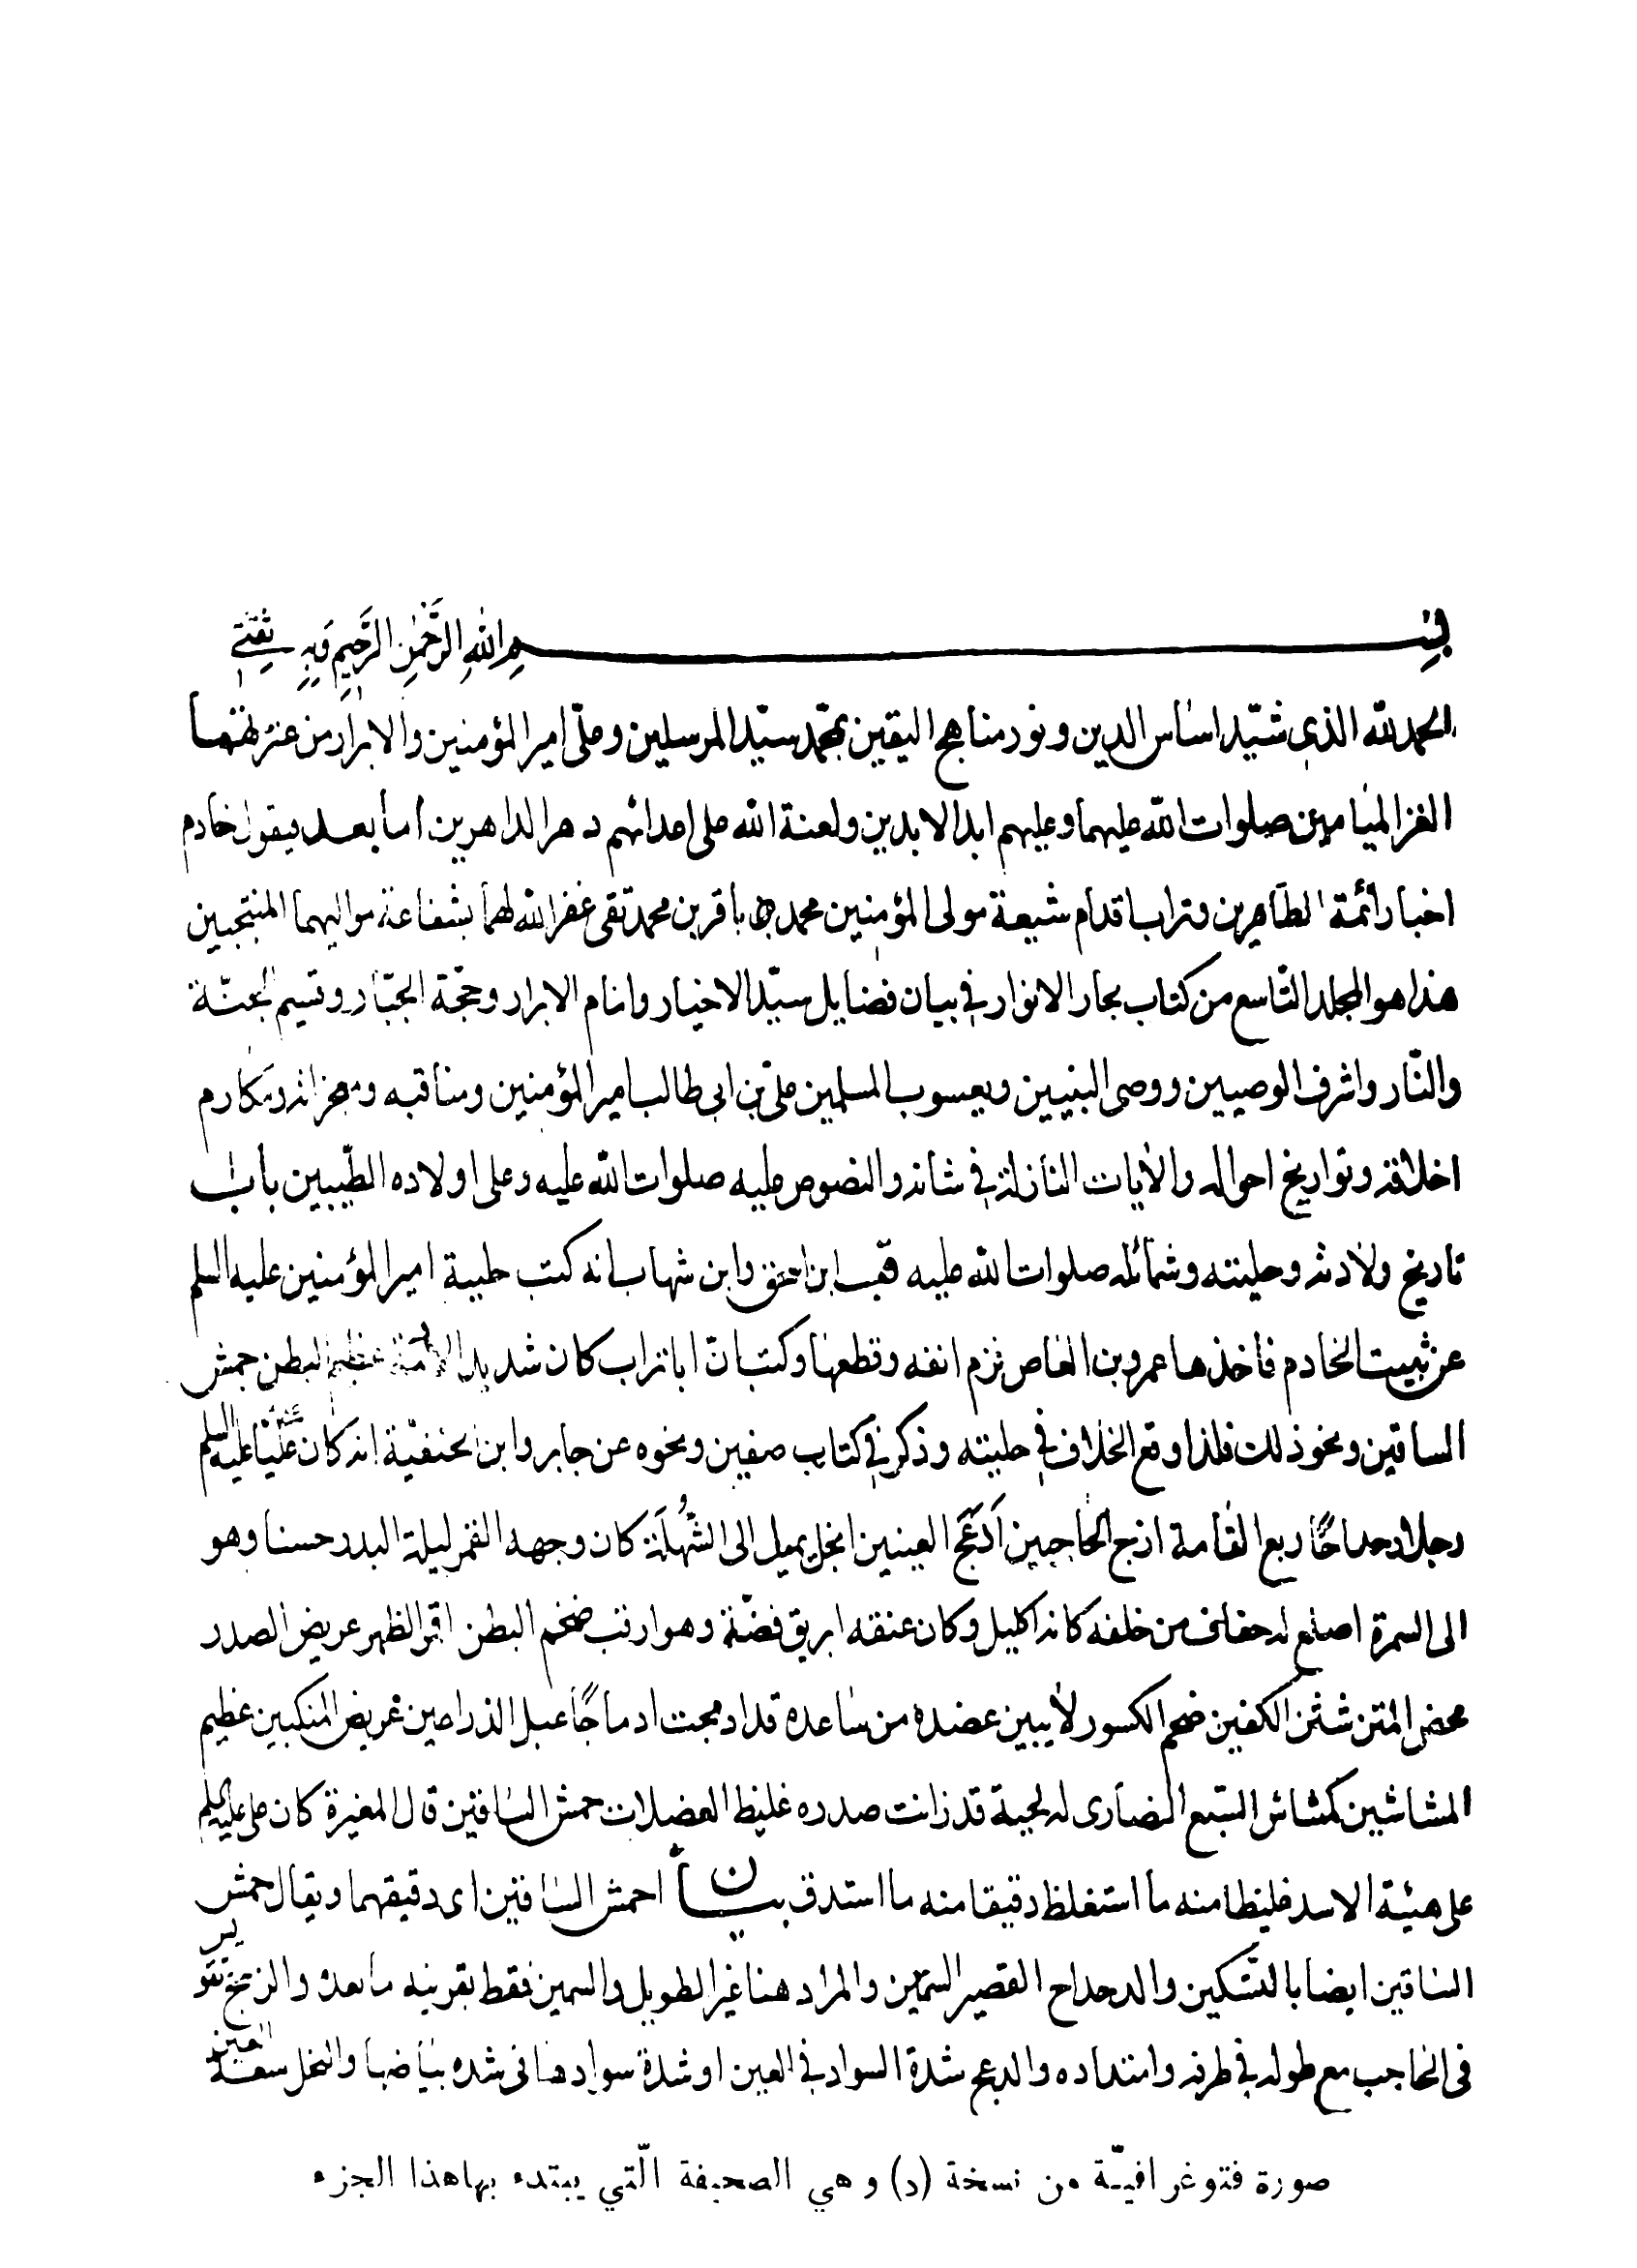 بسم الله الرَّحْمٰنِ الرَّحِيمِ وَبِهِ ثِقَتِي
الحمد لله الذي شيّد اساس الدين و نور مناهج اليقين بمحمّد سيّد المرسلين وعلّى امير المؤمنين والابرار من عترتهما
الغر الميامين صلوات الله عليهما وعليهم ابد الابدين ولعنة الله على اعدائهم دهر الداهرين اما بعد فيقول خادم
اخبار ائمة الطاهرين وتراب اقدام شيعة مولى المؤمنين محمد باقر بن محمد تقى غفر الله لهما بشفاعة مواليهما المنتجبين
هذا هو المجلد التّاسع من كتاب بحار الانوار في بيان فضايل سيّد الاخيار وامام الابرار وحجّة الجبّار وقسيم الجنّة
والنّار واشرف الوصيين ووصى النبيين ويعسوب المسلمين علىّ بن ابى طالب امير المؤمنين ومناقبه ومعجزاته ومكارم
اخلاقه وتواريخ احواله والايات النازلة في شانه والنصوص عليه صلوات الله عليه وعلى اولاده الطّيبين باب
تاريخ ولادته وحليته وشمائله صلوات الله عليه قب ابن اسحق وابن شهاب انه كتب حلية امير المؤمنين عليه السلم
عن ثبيت الخادم فاخذها عمرو بن العاص فزم انفه وقطعها وكتب انّ ابا تراب كان شديد الادمة عظيم البطن حمش
الساقين ونحو ذلك فلذا وقع الخلاف في حليته وذكر في كتاب صفين ونحوه عن جابر وابن الحنفيّة انه كان علىّ عليه السلم
رجلا دحداحًا ربع القامة ازج الحاجبين اَدْعَج العينين انجل يميل الى الشُهْلَة كان وجهه القمر ليلة البدر حسنا وهو
الى السمرة اصلع له حفاف من خلفه كانه اكليل وكان عنقه ابريق فضّة وهو ارقب ضخم البطن اقر الظهر عريض الصدر
محض المتن شثن الكفين ضخم الكسور لايبين عضده من ساعده قد ادمجت ادماجًا عبل الذراعين عريض المنكبين عظيم
المشاشين كمشاش السّبع الضارى له لحية قد زانت صدره غليظ العضلات حمش الساقين قال المغيرة كان على عليه السلم
على هيئة الاسد غليظا منه ما استغلظ دقيقا منه ما استدق بيان احمش الساقين اى دقيقهما ويقال حمش
الساقين ايضا بالتّسكين والدحداح القصير السّمين والمراد هنا غير الطويل والسمين فقط بقرينه ما بعده والزجج تقويس
فى الحاجب مع طوله في طرفه وامتداده والدعج شدة السواد في العين او شدة سوادها فى شده بياضها والنجل سعة العين
صورة فتوغرافيّة من نسخة (د) و هي الصحيفة الّتي يبتدء بهاهذا الجزء